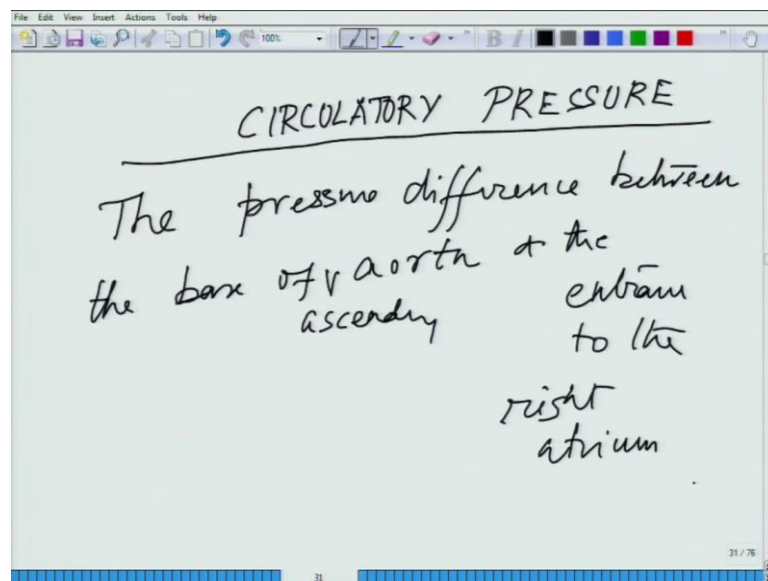 File Edit View Insert Actions Tools Help
100%
CIRCULATORY PRESSURE
The pressure difference between
the base of ascending aorta & the
entrance
to the
right
atrium
31 / 76
31